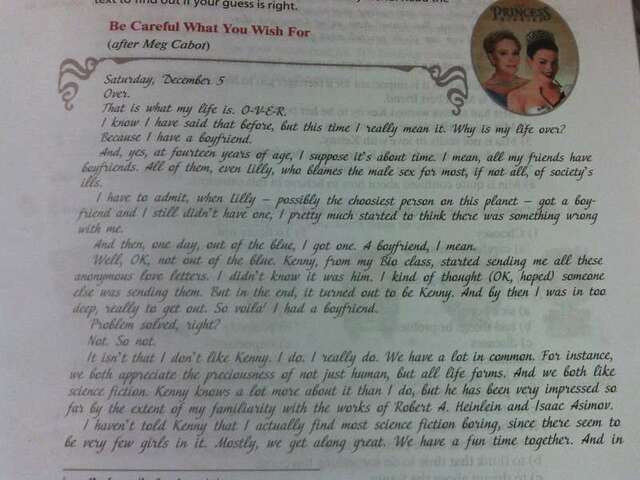 text to find out if your guess is right.
Be Careful What You Wish For
(after Meg Cabot)
PRINCESS
Saturday, December 5
Over.
That is what my life is. O-V-E-R.
I know I have said that before, but this time I really mean it. Why is my life over?
Because I have a boyfriend.
And, yes, at fourteen years of age, I suppose it's about time. I mean, all my friends have
boyfriends. All of them, even Lilly, who blames the male sex for most, if not all, of society's
ills.
I have to admit, when Lilly – possibly the choosiest person on this planet – got a boy-
friend and I still didn't have one, I pretty much started to think there was something wrong
with me.
And then, one day, out of the blue, I got one. A boyfriend, I mean.
Well, OK, not out of the blue. Kenny, from my Bio class, started sending me all these
anonymous love letters. I didn't know it was him. I kind of thought (OK, hoped) someone
else was sending them. But in the end, it turned out to be Kenny. And by then I was in too
deep, really to get out. So voilà! I had a boyfriend.
Problem solved, right?
Not. So not.
It isn't that I don't like Kenny. I do. I really do. We have a lot in common. For instance,
we both appreciate the preciousness of not just human, but all life forms. And we both like
science fiction. Kenny knows a lot more about it than I do, but he has been very impressed so
far by the extent of my familiarity with the works of Robert A. Heinlein and Isaac Asimov.
I haven't told Kenny that I actually find most science fiction boring, since there seem to
be very few girls in it. Mostly, we get along great. We have a fun time together. And in